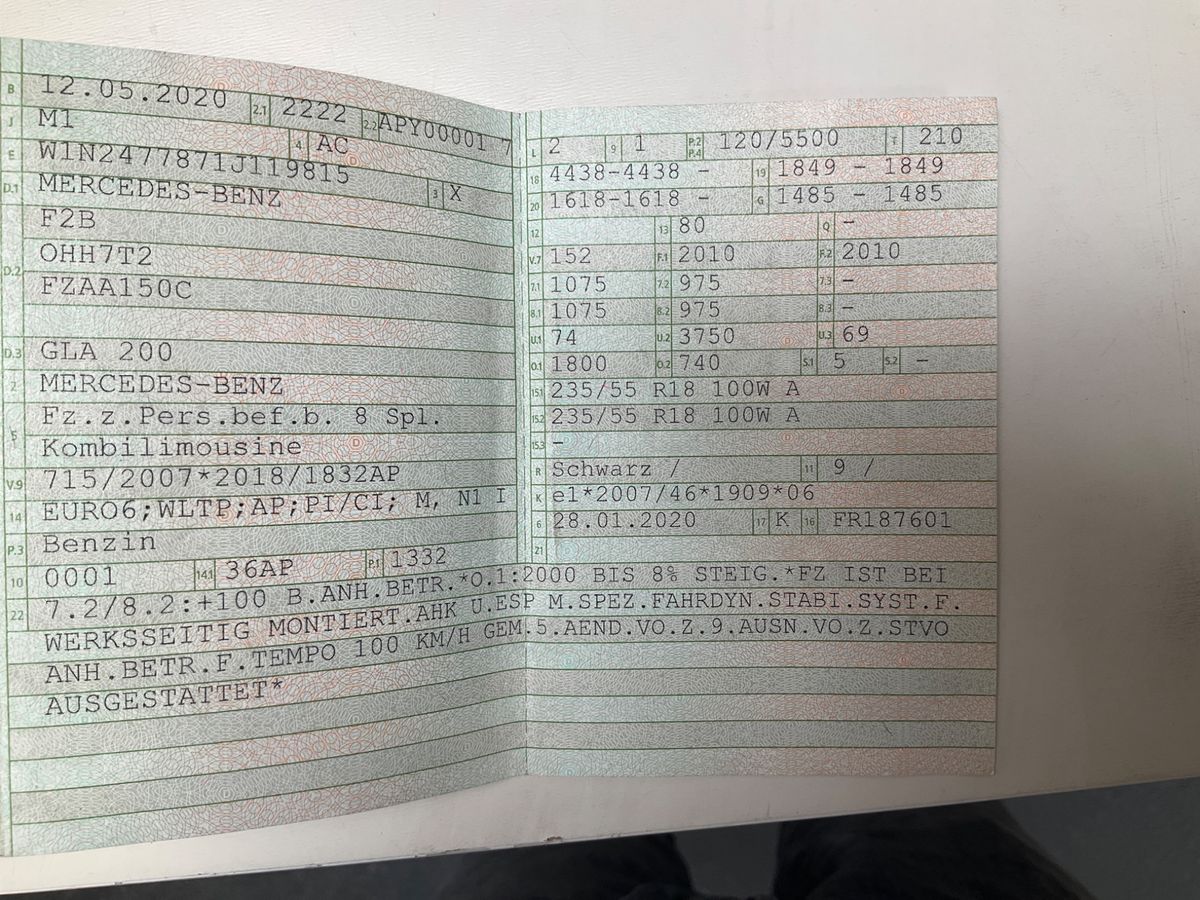 B 12.05.2020 2.1 2222 2.2 APY00001 7
J M1 4 AC
E W1N2477871J119815 3 X
D.1 MERCEDES-BENZ
F2B
D.2 OHH7T2
FZAA150C
D.3 GLA 200
2 MERCEDES-BENZ
5 Fz.z.Pers.bef.b. 8 Spl.
Kombilimousine
V.9 715/2007*2018/1832AP
14 EURO6;WLTP;AP;PI/CI; M, N1 I
P.3 Benzin
10 0001 14.1 36AP P.1 1332
L 2 9 1 P.2 P.4 120/5500 T 210
18 4438-4438 - 19 1849 - 1849
20 1618-1618 - G 1485 - 1485
12 13 80 Q -
V.7 152 F.1 2010 F.2 2010
7.1 1075 7.2 975 7.3 -
8.1 1075 8.2 975 8.3 -
U.1 74 U.2 3750 U.3 69
O.1 1800 O.2 740 S.1 5 S.2 -
15.1 235/55 R18 100W A
15.2 235/55 R18 100W A
15.3 -
R Schwarz / 11 9 /
K e1*2007/46*1909*06
6 28.01.2020 17 K 16 FR187601
21
22 7.2/8.2:+100 B.ANH.BETR.*O.1:2000 BIS 8% STEIG.*FZ IST BEI
WERKSSEITIG MONTIERT.AHK U.ESP M.SPEZ.FAHRDYN.STABI.SYST.F.
ANH.BETR.F.TEMPO 100 KM/H GEM.5.AEND.VO.Z.9.AUSN.VO.Z.STVO
AUSGESTATTET*